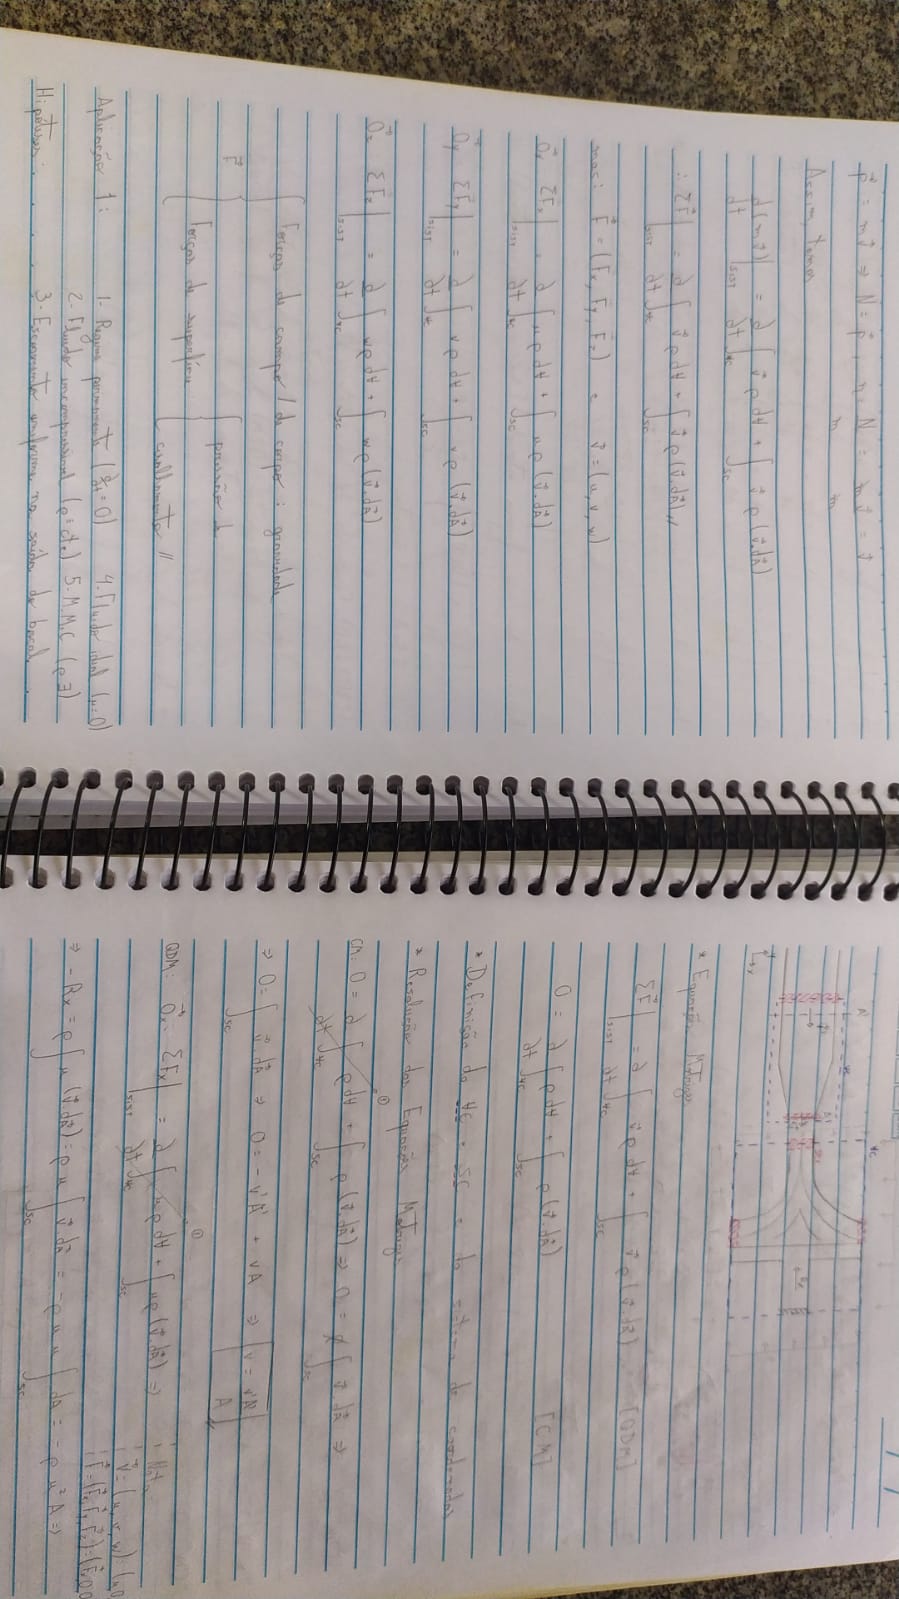 p⃗ = m v⃗ ⇒ N = p⃗ , η = N/m = m v⃗/m = v⃗
Assim, temos
d(m v⃗)/dt |sist = ∂/∂t ∫vc v⃗ ρ dV + ∫sc v⃗ ρ (v⃗.dA⃗)
∴ ΣF⃗ |sist = ∂/∂t ∫vc v⃗ ρ dV + ∫sc v⃗ ρ (v⃗.dA⃗) //
mas: F⃗ = (Fx, Fy, Fz) e v⃗ = (u, v, w)
ΣFx |sist = ∂/∂t ∫vc u ρ dV + ∫sc u ρ (v⃗.dA⃗)
ΣFy |sist = ∂/∂t ∫vc v ρ dV + ∫sc v ρ (v⃗.dA⃗)
ΣFz |sist = ∂/∂t ∫vc w ρ dV + ∫sc w ρ (v⃗.dA⃗)
Forças de campo / de corpo : gravidade
F⃗
Forças de superfície
pressão
cisalhamento //
Aplicação 1: 1- Regime permanente (∂/∂t = 0) 4- Fluido ideal (μ=0)
2- Fluido incompressível (ρ = cte) 5- M.M.C (ρ∃)
Hipóteses: 3- Escoamento uniforme na saída do bocal
* Equações
ΣF⃗ |sist = ∂/∂t ∫vc v⃗ ρ dV + ∫sc v⃗ ρ (v⃗.dA⃗) [QDM]
0 = ∂/∂t ∫vc ρ dV + ∫sc ρ (v⃗.dA⃗) [CM]
* Definição do VC, SC e do sistema de coordenadas
* Resolução das Equações
CM: 0 = ∂/∂t ∫vc ρ dV + ∫sc ρ (v⃗.dA⃗) ⇒ 0 = ρ ∫sc v⃗ dA⃗ ⇒
⇒ 0 = ∫sc v⃗ dA⃗ ⇒ 0 = - v'A' + vA ⇒ v = v'A'/A //
QDM: ΣFx |sist = ∂/∂t ∫vc u ρ dV + ∫sc u ρ (v⃗.dA⃗) ⇒
Nota
⇒ -Rx = ρ ∫sc u (v⃗.dA⃗) = ρ u ∫sc v⃗ dA⃗ = - ρ u u ∫sc dA = - ρ u² A ⇒